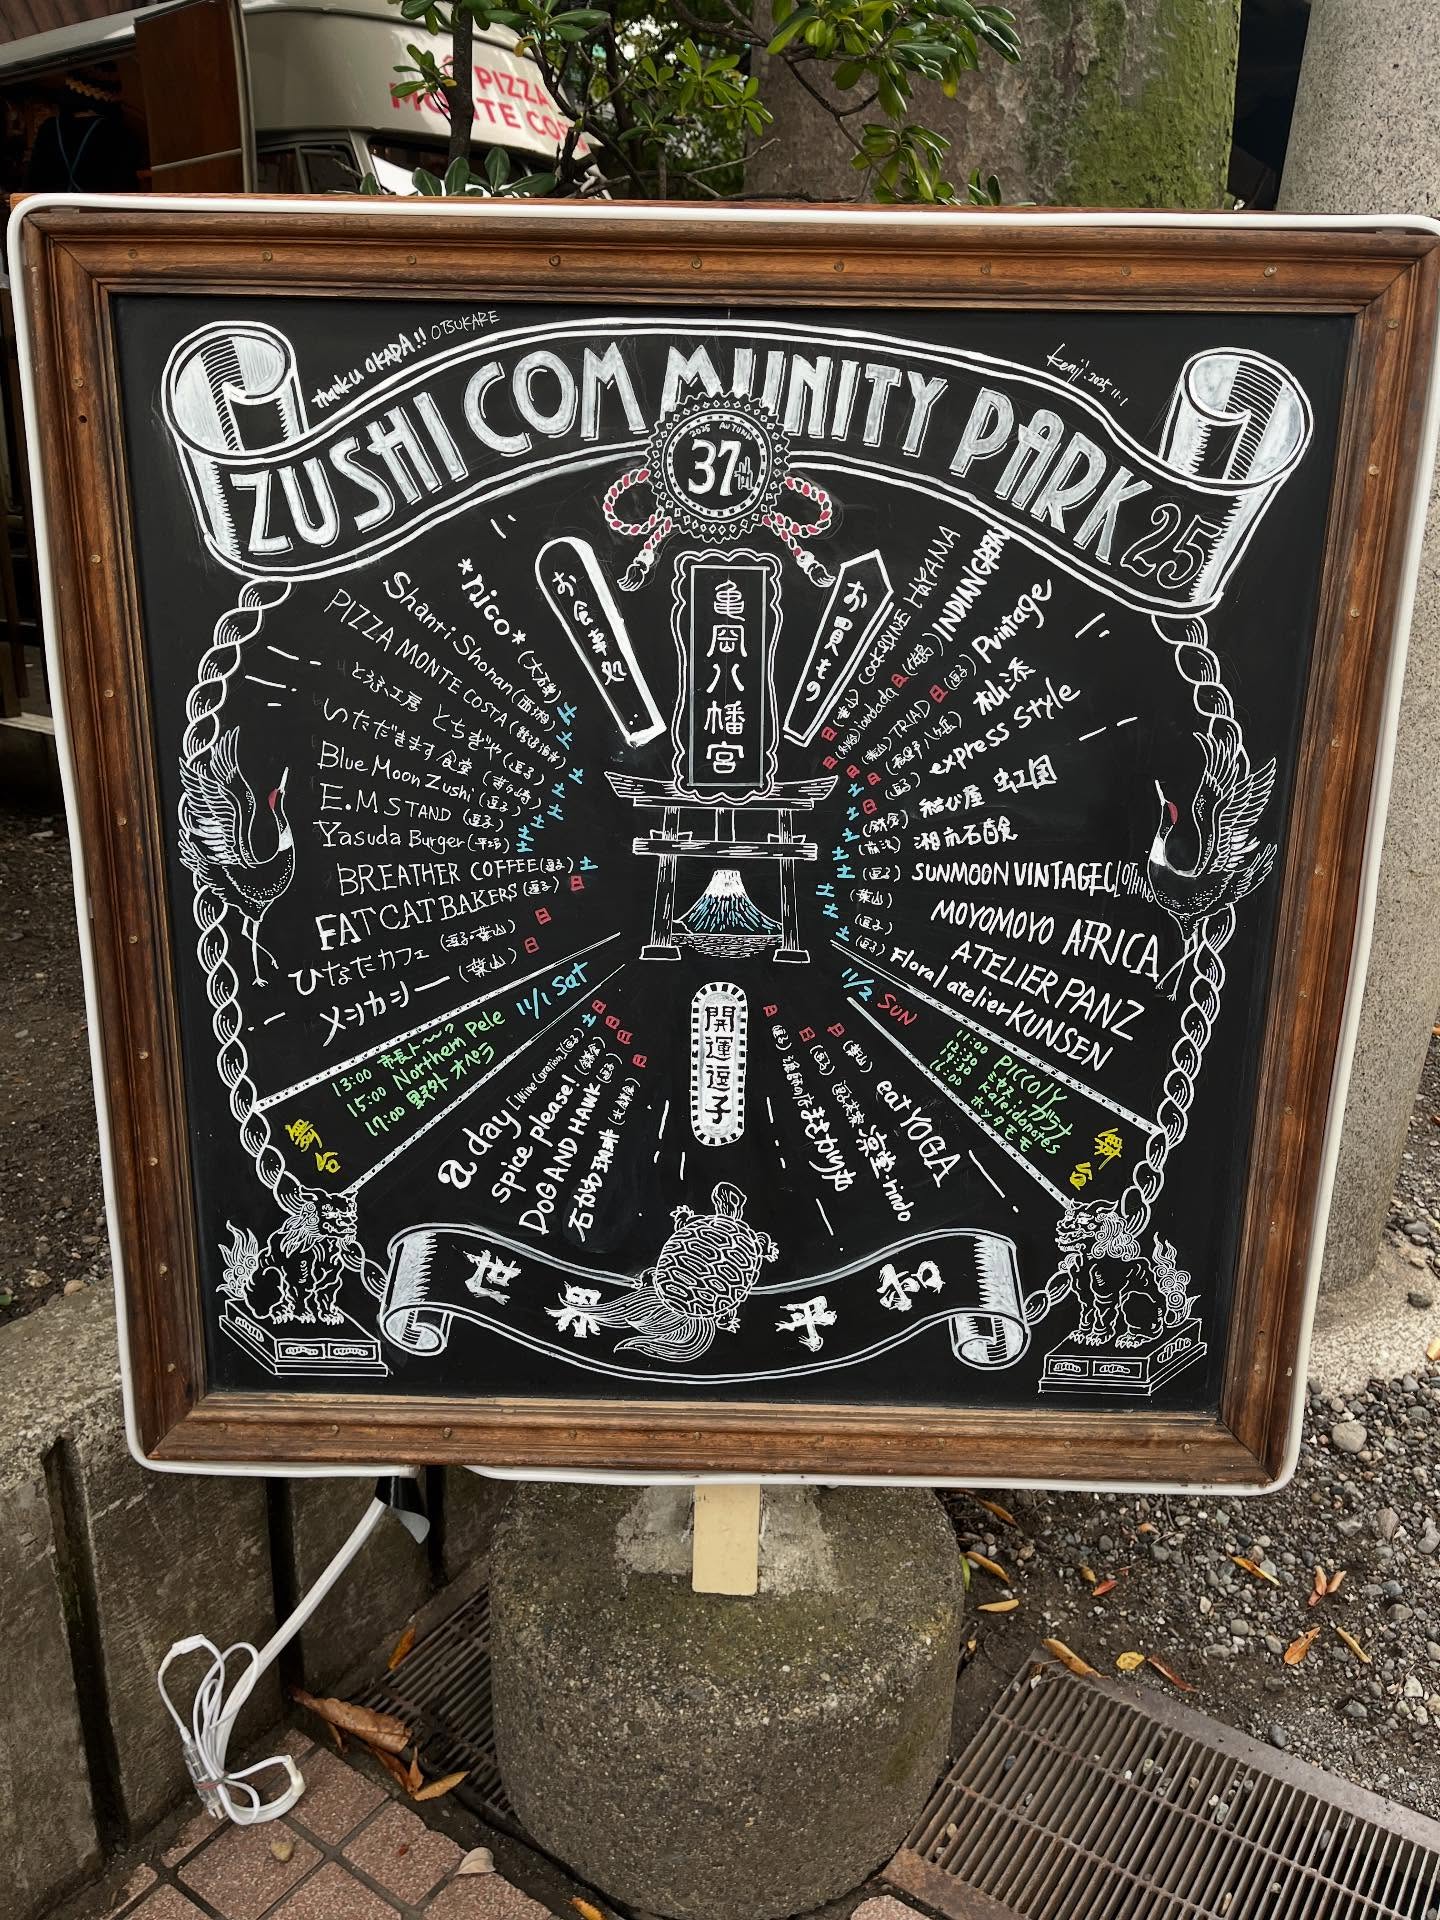 PIZZA
MONTE COS
thanku OKADA!! OTSUKARE
Kenji. 2025 11.1
ZUSHI COMMUNITY PARK 25
2025 AUTUMN
37th
亀岡八幡宮
お食事処
お買もの
*nico* (大磯)
Shanti Shonan (西湘) 土
PIZZA MONTE COSTA 土
とうふ工房 とちぎや (逗子) 土
いただきます食堂 (茅ヶ崎) 土
Blue Moon Zushi (逗子) 土
E.M STAND (逗子) 土
Yasuda Burger (平塚) 土
BREATHER COFFEE (逗子) 土
FAT CAT BAKERS (逗子) 日
ひなたカフェ (逗子・葉山) 日
メシカシー (葉山) 日
11/1 Sat
13:00 市長ト〜ク?
15:00 Northern Pele
17:00 野外オペラ
舞台
a day [Wine Coration] (逗子) 土
spice please! (鎌倉) 日
DOG AND HAWK (逗子) 日
石かわ珈琲 (北鎌倉) 日
開運逗子
日 (逗子) 漁師の店 まきかり加
日 (逗子) 逗子茶寮 凛堂-rindo
日 (葉山) eat YOGA
(葉山) COCKSIDINE HAYAMA
日 jordada (佐島) INDIANGREEN
日 (葉山) TRIAD 日 (逗子) Pvintage
日 (長野 八ヶ岳) 松添
(逗子) express style
日 (鎌倉) 結び屋 虫工国
土 (藤沢) 湘南石鹸
土 (逗子) SUNMOON VINTAGE CLOTHING
土 (葉山) MOYOMOYO AFRICA
土 (逗子) ATELIER PANZ
土 (逗子) Floral atelier KUNSEN
11/2 SUN
11:00 PICCOLY
12:30 ミヤケ・ガラナ
14:30 Kaleidonotes
16:00 ホッタモモ
舞台
世界平和